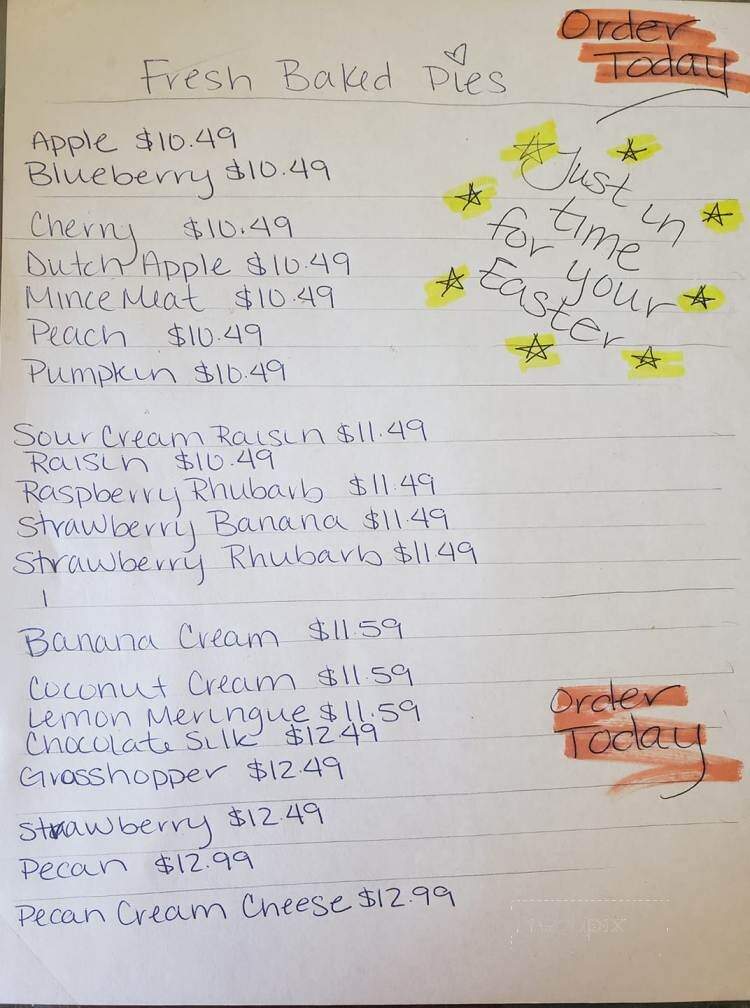 Order
Today
Fresh Baked Pies
Apple $10.49
Blueberry $10.49
Just in
time
for your
Easter
Cherry $10.49
Dutch Apple $10.49
Mince Meat $10.49
Peach $10.49
Pumpkin $10.49
Sour Cream Raisin $11.49
Raisin $10.49
Raspberry Rhubarb $11.49
Strawberry Banana $11.49
Strawberry Rhubarb $11.49
Banana Cream $11.59
Coconut Cream $11.59
Lemon Meringue $11.59
Chocolate Silk $12.49
Grasshopper $12.49
Order
Today
Strawberry $12.49
Pecan $12.99
Pecan Cream Cheese $12.99